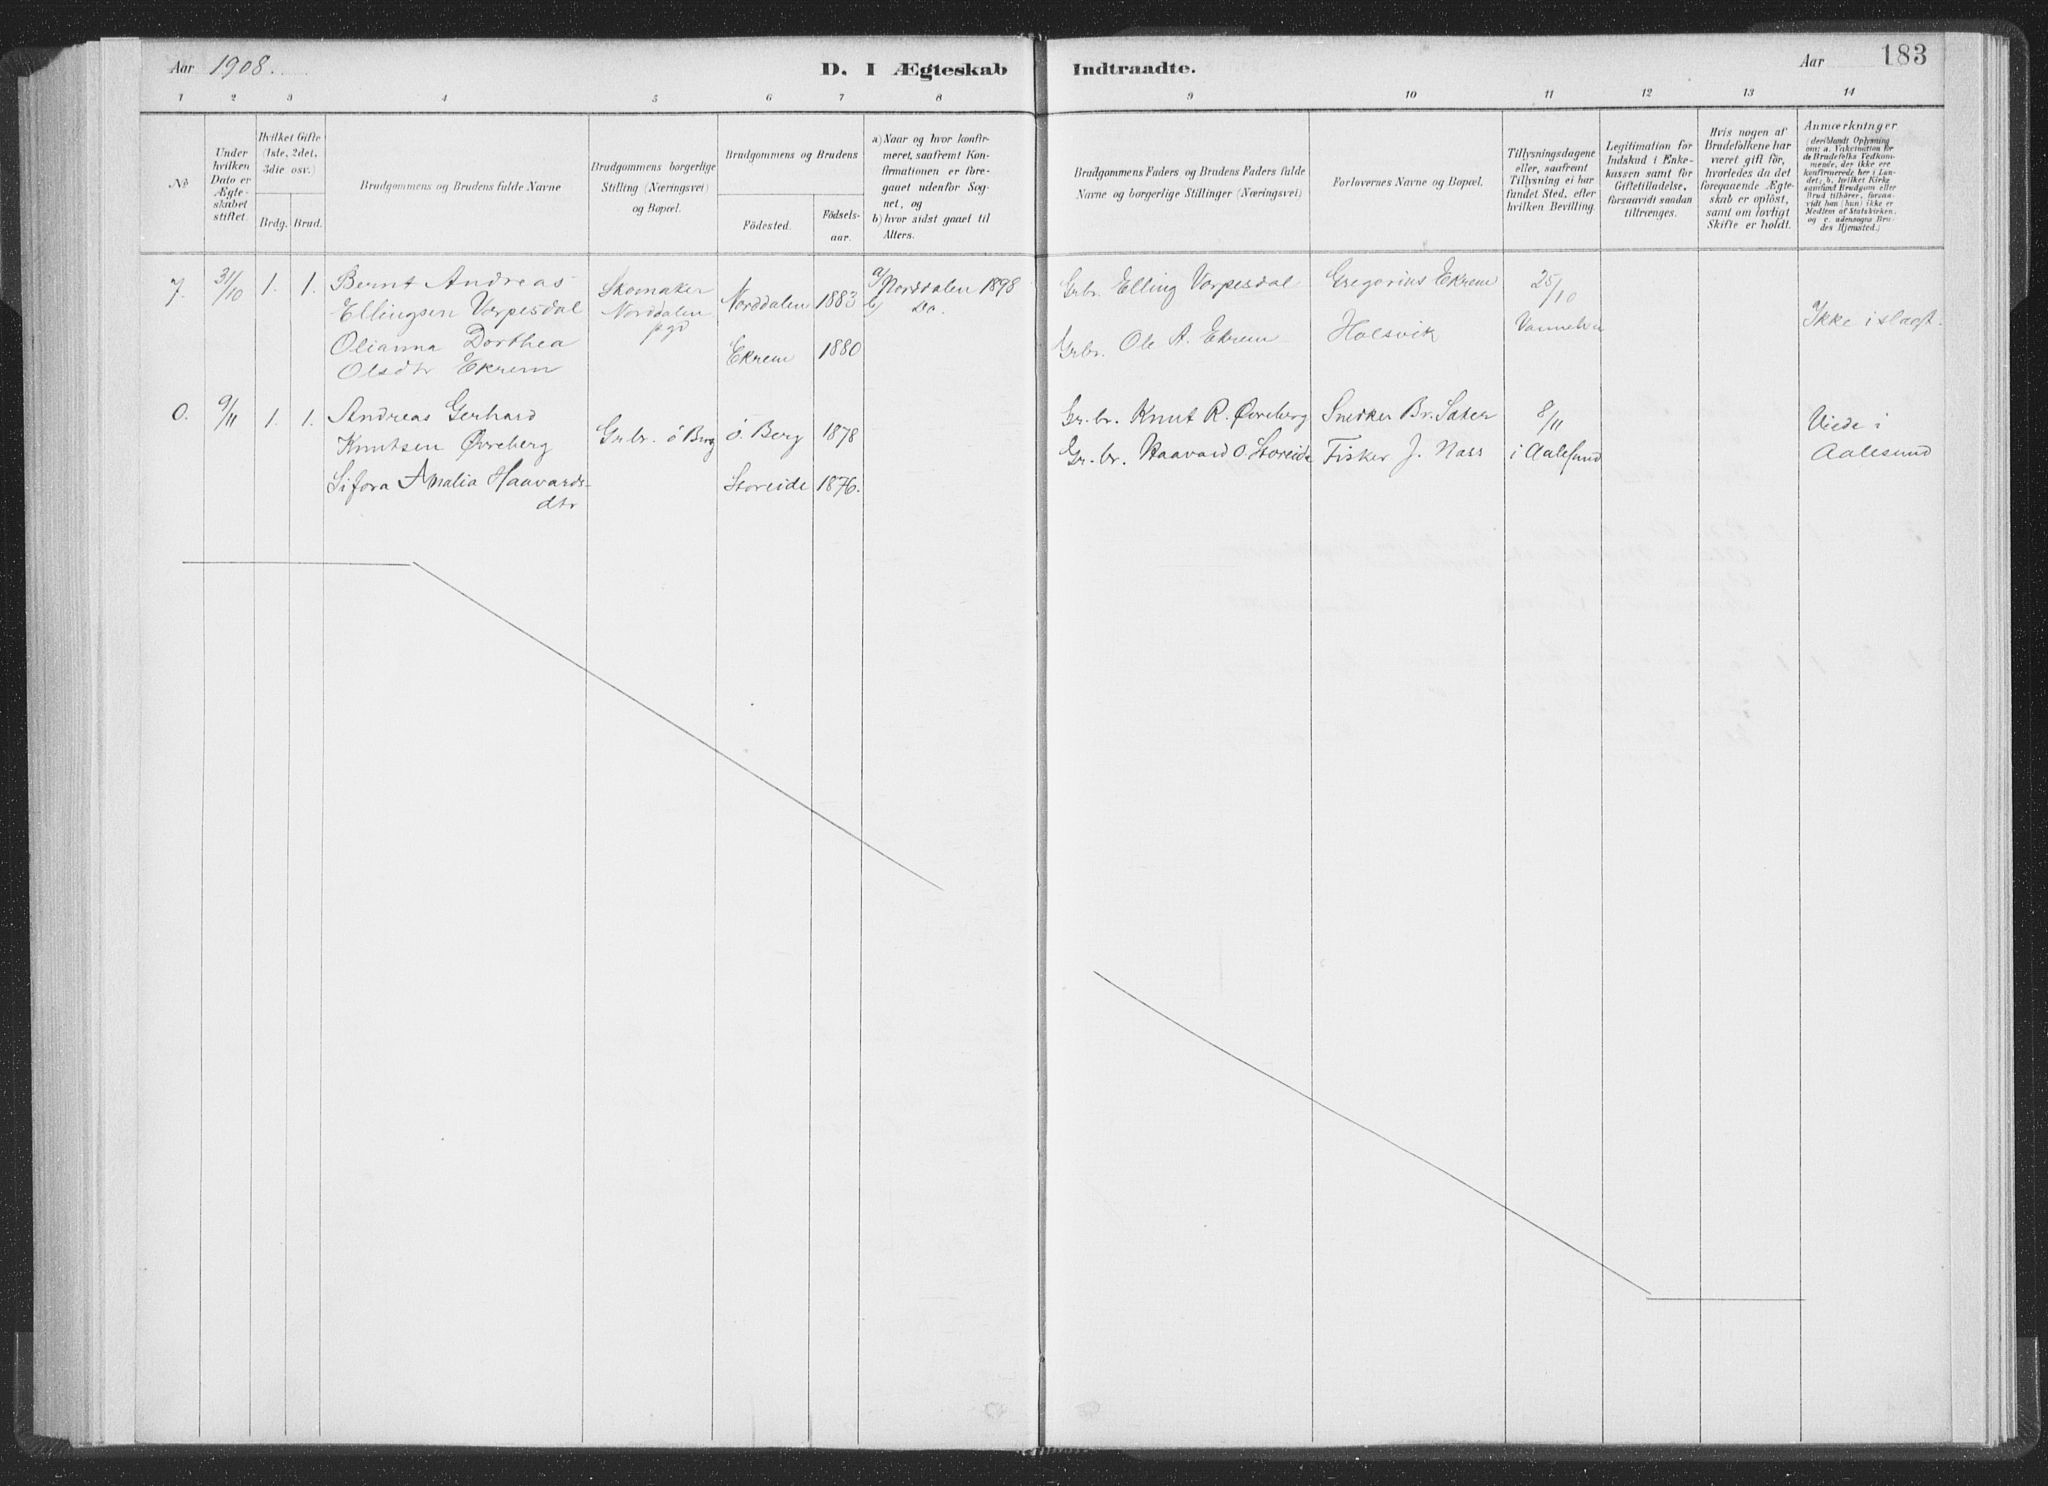 Aar 1908.
D. I Ægteskab Indtraadte.
Aar
183
1 2 3 4 5 6 7 8 9 10 11 12 13 14
No
Under hvilken Dato er Ægteskabet stiftet.
Hvilket Gifte (1ste, 2det, 3die osv.)
Brdg. Brud.
Brudgommens og Brudens fulde Navne
Brudgommens borgerlige Stilling (Næringsvei) og Bopæl.
Brudgommens og Brudens
Fødested.
Fødselsaar.
a) Naar og hvor konfirmeret, saafremt Konfirmationen er foregaaet udenfor Sognet, og
b) hvor sidst gaaet til Alters.
Brudgommens Faders og Brudens Faders fulde Navne og borgerlige Stillinger (Næringsvei)
Forlovernes Navne og Bopæl.
Tillysningsdagene eller, saafremt Tillysning ei har fundet Sted, efter hvilken Bevilling.
Legitimation for Indskud i Enkekassen samt for Giftetilladelse, forsaavidt saadan tiltrænges.
Hvis nogen af Brudefolkene har været gift før, hvorledes da det foregaaende Ægteskab er opløst, samt om lovligt Skifte er holdt.
Anmærkninger
(deriblandt Oplysning om: a. Vakcination for de Brudefolks Vedkommende, der ikke ere konfirmerede her i Landet; b. hvilket Kirkesamfund Brudgom eller Brud tilhører, forsaavidt han (hun) ikke er Medlem af Statskirken, og c. udensogns Brudes Hjemsted.)
7. 31/10 1. 1. Bernt Andreas
Ellingsen Varpesdal
Olianna Dorthea
Olsdtr Ekrem
Skomaker
Norddalen
pgd
Norddalen 1883
Ekrem 1880
a) Norddalen 1898
b) Do.
Grbr. Elling Varpesdal
Grbr. Ole A. Ekrem
Gregorius Ekrem
Holsvik
25/10
Ikke i slægt.
9/11 1. 1. Andreas Gerhard
Knutsen Øvreberg
Sifora Amalia Haavards-
dtr
Grbr. ö Berg
ö. Berg 1878
Storeide 1876.
Gr.br. Knut R. Øvreberg
Gr.br. Haavard O Storeide
Snedker Br. Sater
Fisker J. Nass
8/11
i Aalesund
Viede i
Aalesund